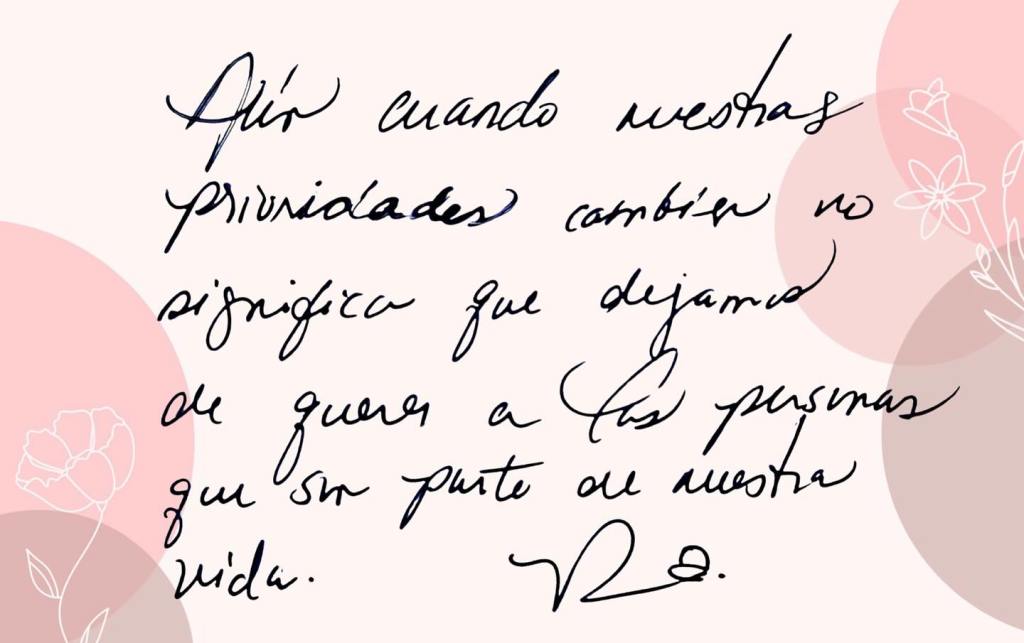 Aún cuando nuestras
prioridades cambien no
significa que dejamos
de querer a las personas
que son parte de nuestra
vida.